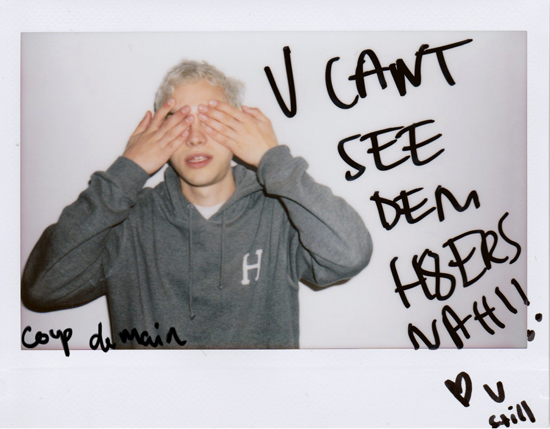 U CANT
SEE
DEM
H8ERS
NAH!!
H
coup de main
♥ U
still